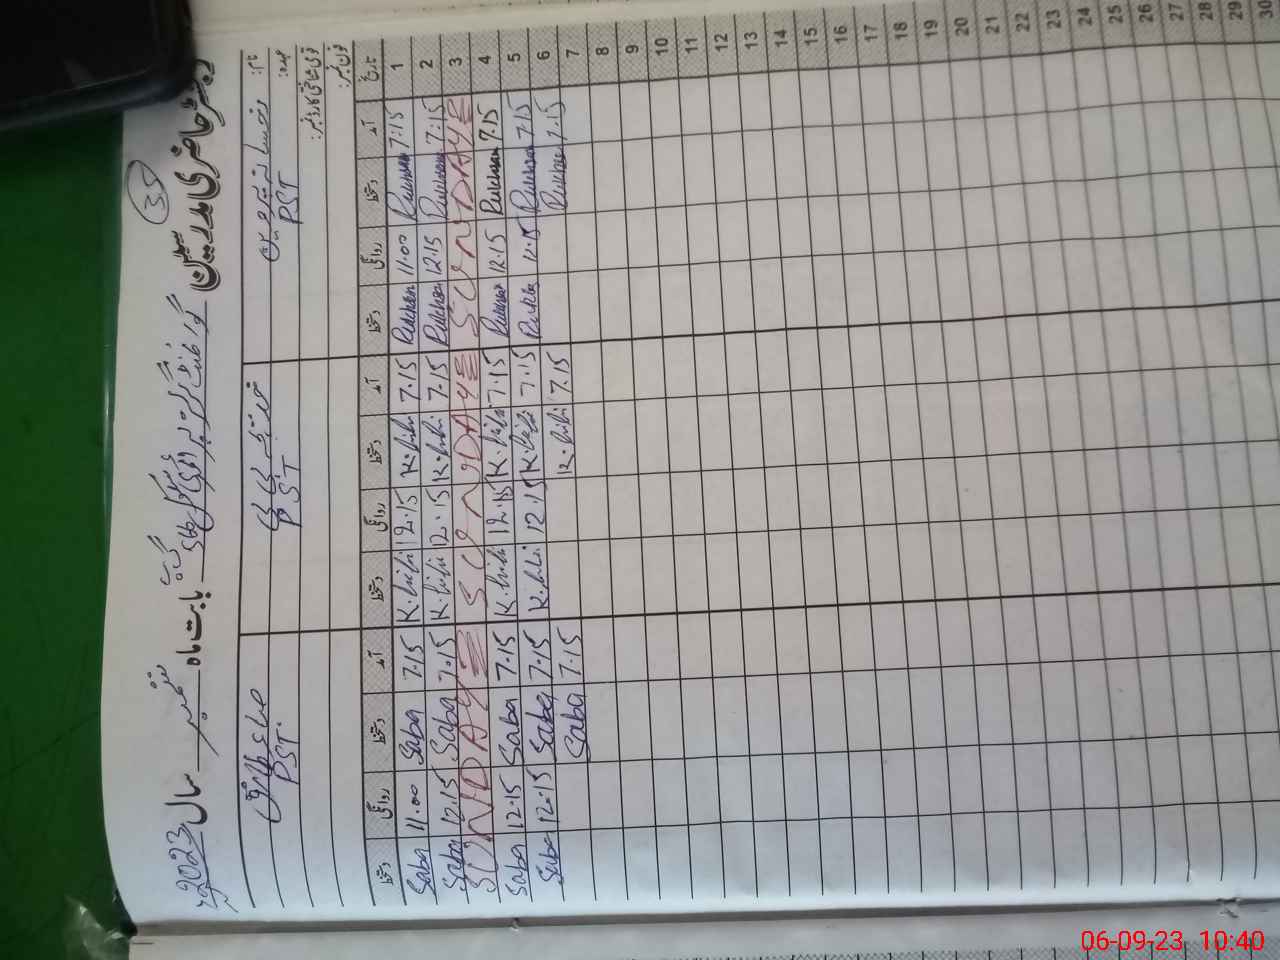 35
دفتر حاضری مدرسین گورنمنٹ گرلز پرائمری سکول بابت ماہ ستمبر سال 2023ء
نام:
عہدہ: PST PST PST
تاریخ آمد دستخط روانگی دستخط آمد دستخط روانگی دستخط آمد دستخط روانگی دستخط
1 7:15 Rukhsan 11.00 Rukhsan 7.15 K.bibi 12.15 K.bibi 7.15 Saba 11.00 Saba
2 7:15 Rukhsan 12.15 Rukhsan 7.15 K.bibi 12.15 K.bibi 7.15 Saba 12.15 Saba
3 SUNDAY SUNDAY SUNDAY
4 7.15 Rukhsan 12.15 Rukhsan 7.15 K.bibi 12.15 K.bibi 7.15 Saba 12.15 Saba
5 7.15 Rukhsan 12.15 7.15 K.bibi 12.15 K.bibi 7.15 Saba 12.15 Saba
6 7.15 7.15 K.bibi 7.15 Saba
7
8
9
10
11
12
13
14
15
16
17
18
19
20
21
22
23
24
25
26
27
28
29
30
06-09-23 10:40